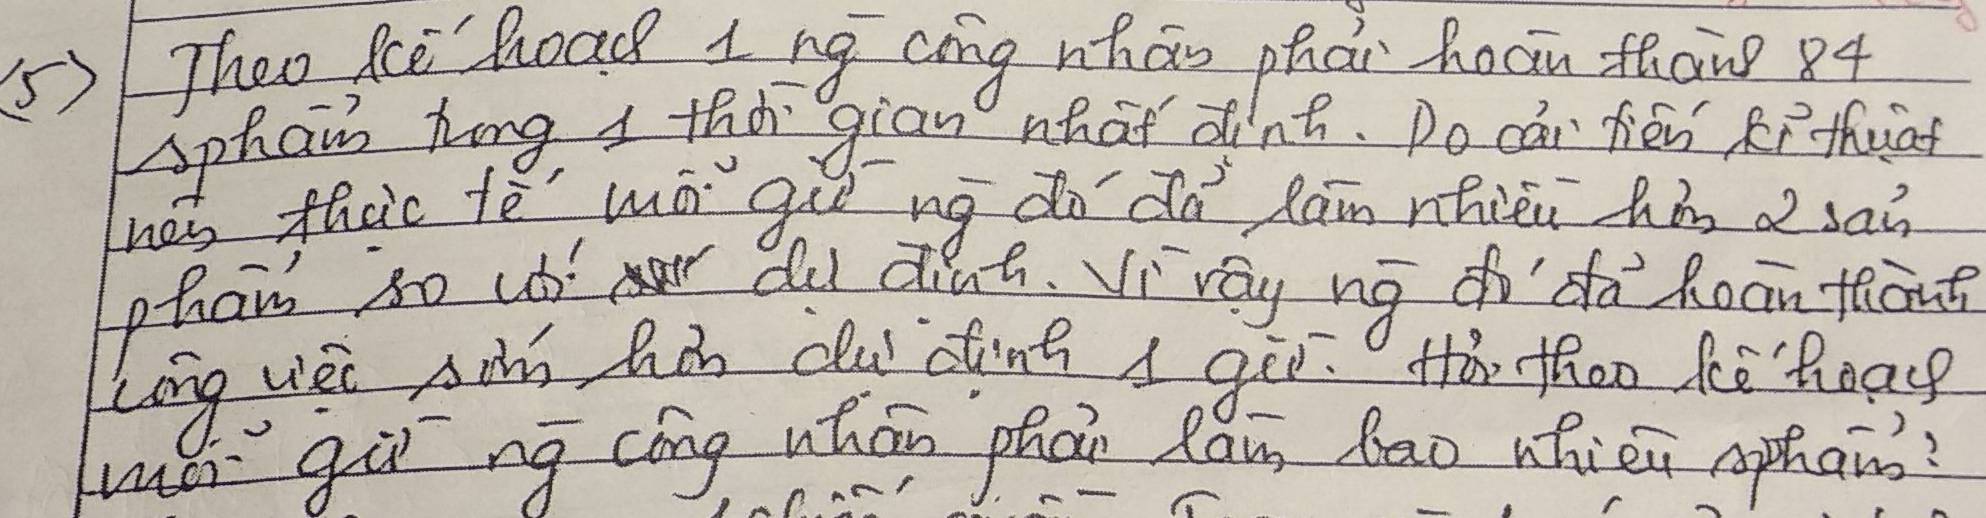 (5) Theo kế hoạch 1 ng công nhân phải hoàn thành 84
sphẩm trong 1 thời gian nhất định. Do cải tiến kĩ thuật
nên thực tế mỗi giờ ng đó đã làm nhiều hơn 2 sản
phẩm so với dự định. Vì vậy ng đó đã hoàn thành
công việc sớm hơn dự định 1 giờ. Hỏi theo kế hoạch
mỗi giờ ng công nhân phải làm bao nhiêu sphẩm?